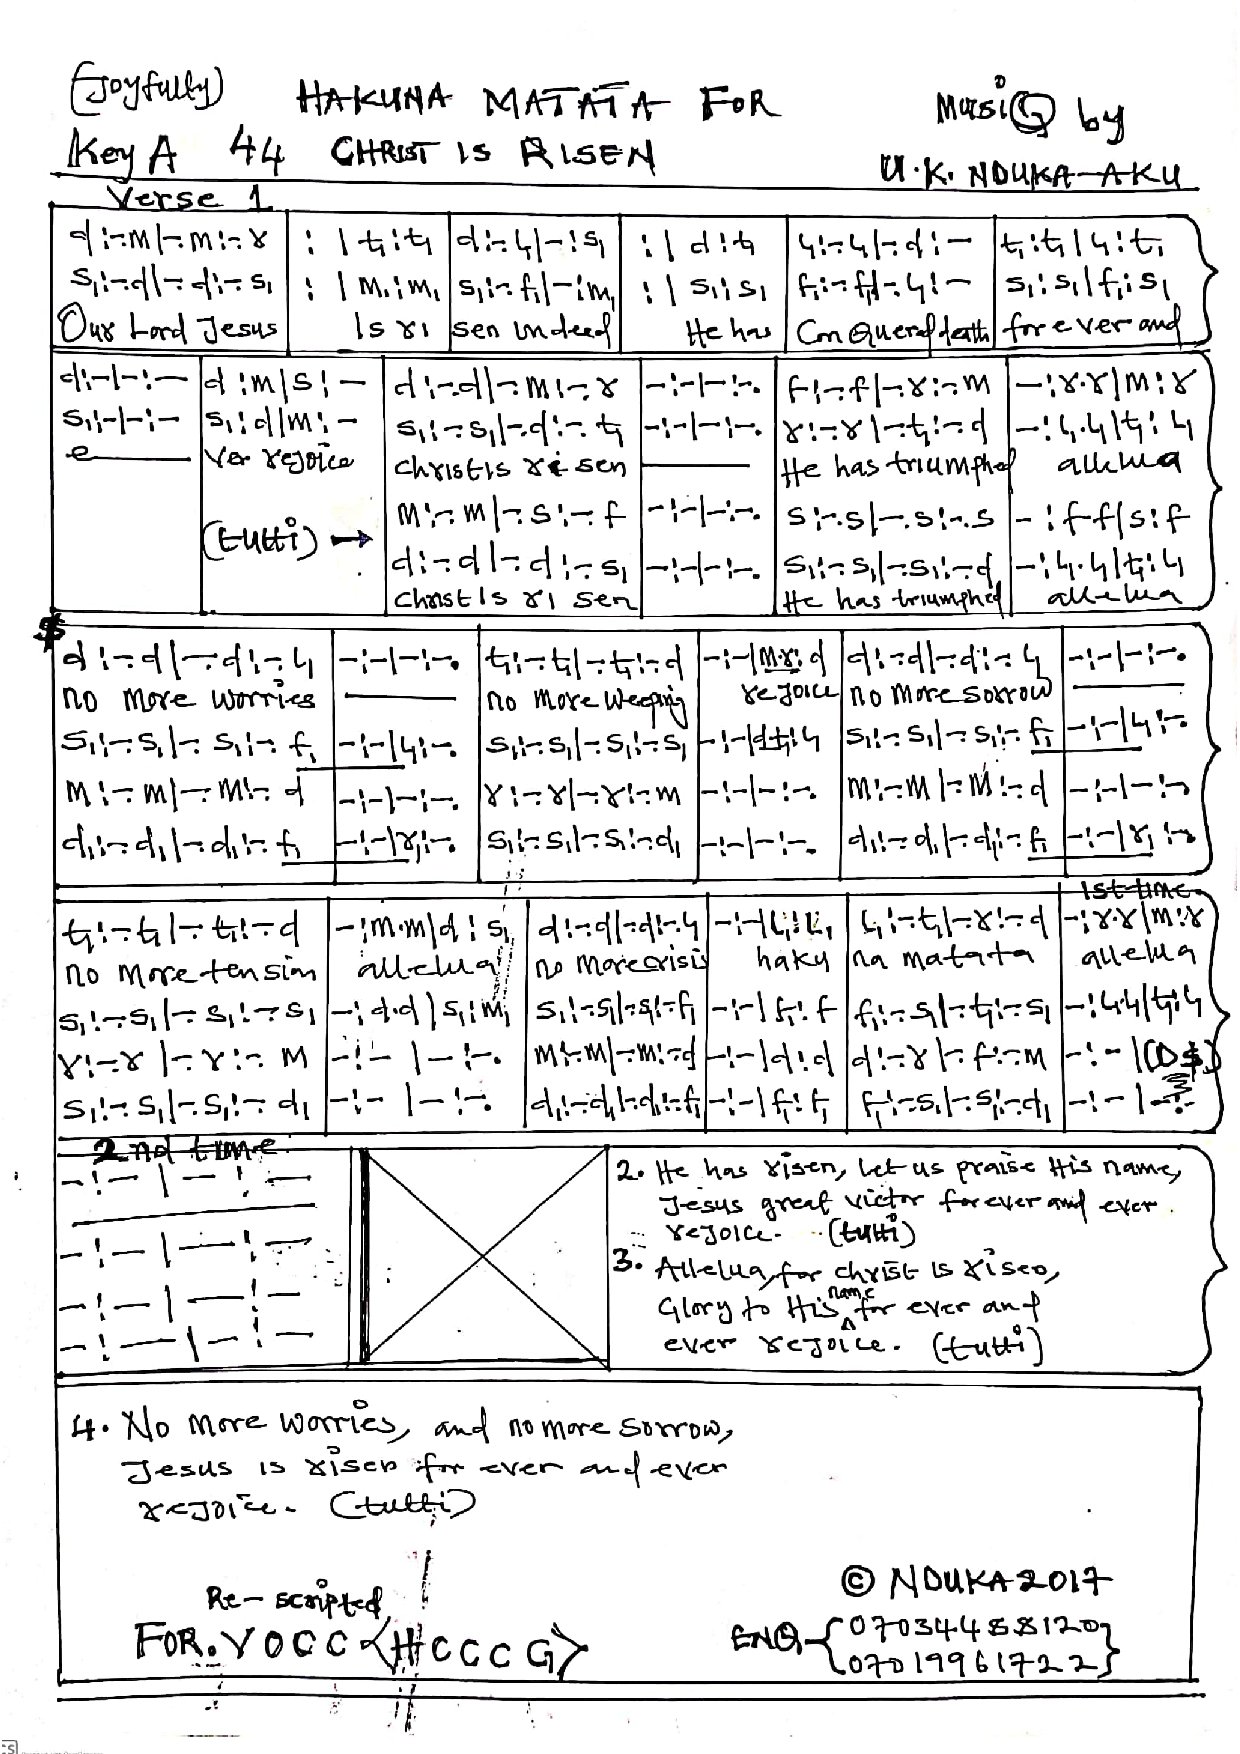 (Joyfully) HAKUNA MATATA FOR Music by
Key A 44 CHRIST IS RISEN U.K. NDUKA-AKU
Verse 1
d:-.m|-.m:-.r : |t₁:t₁ d:-.l₁|-:s₁ : |d:t₁ l₁:-.l₁|-.d:- t₁:t₁|l₁:t₁
s₁:-.d|-.d:-.s₁ : |m₁:m₁ s₁:-.f₁|-:m₁ : |s₁:s₁ f₁:-.f₁|-.l₁:- s₁:s₁|f₁:s₁
Our Lord Jesus Is ri sen indeed He has Conquered death for ever and
d:-|-:- d:m|s:- d:-.d|-.m:-.r -:-|-:-. f:-.f|-.r:-.m -:r.r|m:r
s₁:-|-:- s₁:d|m:- s₁:-.s₁|-.d:-.t₁ -:-|-:-. r:-.r|-.t₁:-.d -:l₁.l₁|t₁:l₁
e ver rejoice christ is ri sen He has triumphed allelua
m:-.m|-.s:-.f -:-|-:-. s:-.s|-.s:-.s -:f.f|s:f
(tutti) → d:-.d|-.d:-.s₁ -:-|-:-. s₁:-.s₁|-.s₁:-.d -:l₁.l₁|t₁:l₁
christ is ri sen He has triumphed allelua
$ d:-.d|-.d:-.l₁ -:-|-:-. t₁:-.t₁|-.t₁:-.d -:-|m.r:d d:-.d|-.d:-.l₁ -:-|-:-.
no more worries no more weeping rejoice no more sorrow
s₁:-.s₁|-.s₁:-.f₁ -:-|l₁:-. s₁:-.s₁|-.s₁:-.s₁ -:-|d.t₁:l₁ s₁:-.s₁|-.s₁:-.f₁ -:-|l₁:-.
m:-.m|-.m:-.d -:-|-:-. r:-.r|-.r:-.m -:-|-:-. m:-.m|-.m:-.d -:-|-:-.
d₁:-.d₁|-.d₁:-.f₁ -:-|r₁:-. s₁:-.s₁|-.s₁:-.d₁ -:-|-:-. d₁:-.d₁|-.d₁:-.f₁ -:-|r₁:-.
1st time
t₁:-.t₁|-.t₁:-.d -:m.m|d:s₁ d:-.d|-.d:-.l₁ -:-|l₁:l₁ l₁:-.t₁|-.r:-.d -:r.r|m:r
no more tension allelua no more crisis haku na matata allelua
s₁:-.s₁|-.s₁:-.s₁ -:d.d|s₁:m₁ s₁:-.s₁|-.s₁:-.f₁ -:-|f:f f₁:-.s₁|-.t₁:-.s₁ -:l₁.l₁|t₁:l₁
r:-.r|-.r:-.m -:-|-:-. m:-.m|-.m:-.d -:-|d:d d:-.r|-.f:-.m -:-|(D$)
s₁:-.s₁|-.s₁:-.d₁ -:-|-:-. d₁:-.d₁|-.d₁:-.f₁ -:-|f₁:f₁ f₁:-.s₁|-.s₁:-.d₁ -:-|-:-
2nd time
-:-|-:-
-:-|-:-
-:-|-:-
-:-|-:-
2. He has risen, let us praise His name,
Jesus great victor for ever and ever
rejoice. (tutti)
3. Allelua, for christ is risen,
Glory to His name for ever and
ever rejoice. (tutti)
4. No more worries, and no more sorrow,
Jesus is risen for ever and ever
rejoice. (tutti)
Re-scripted
FOR. VOCC <HCCCG>
© NDUKA 2017
ENQ {07034488120
07019961722}
CS